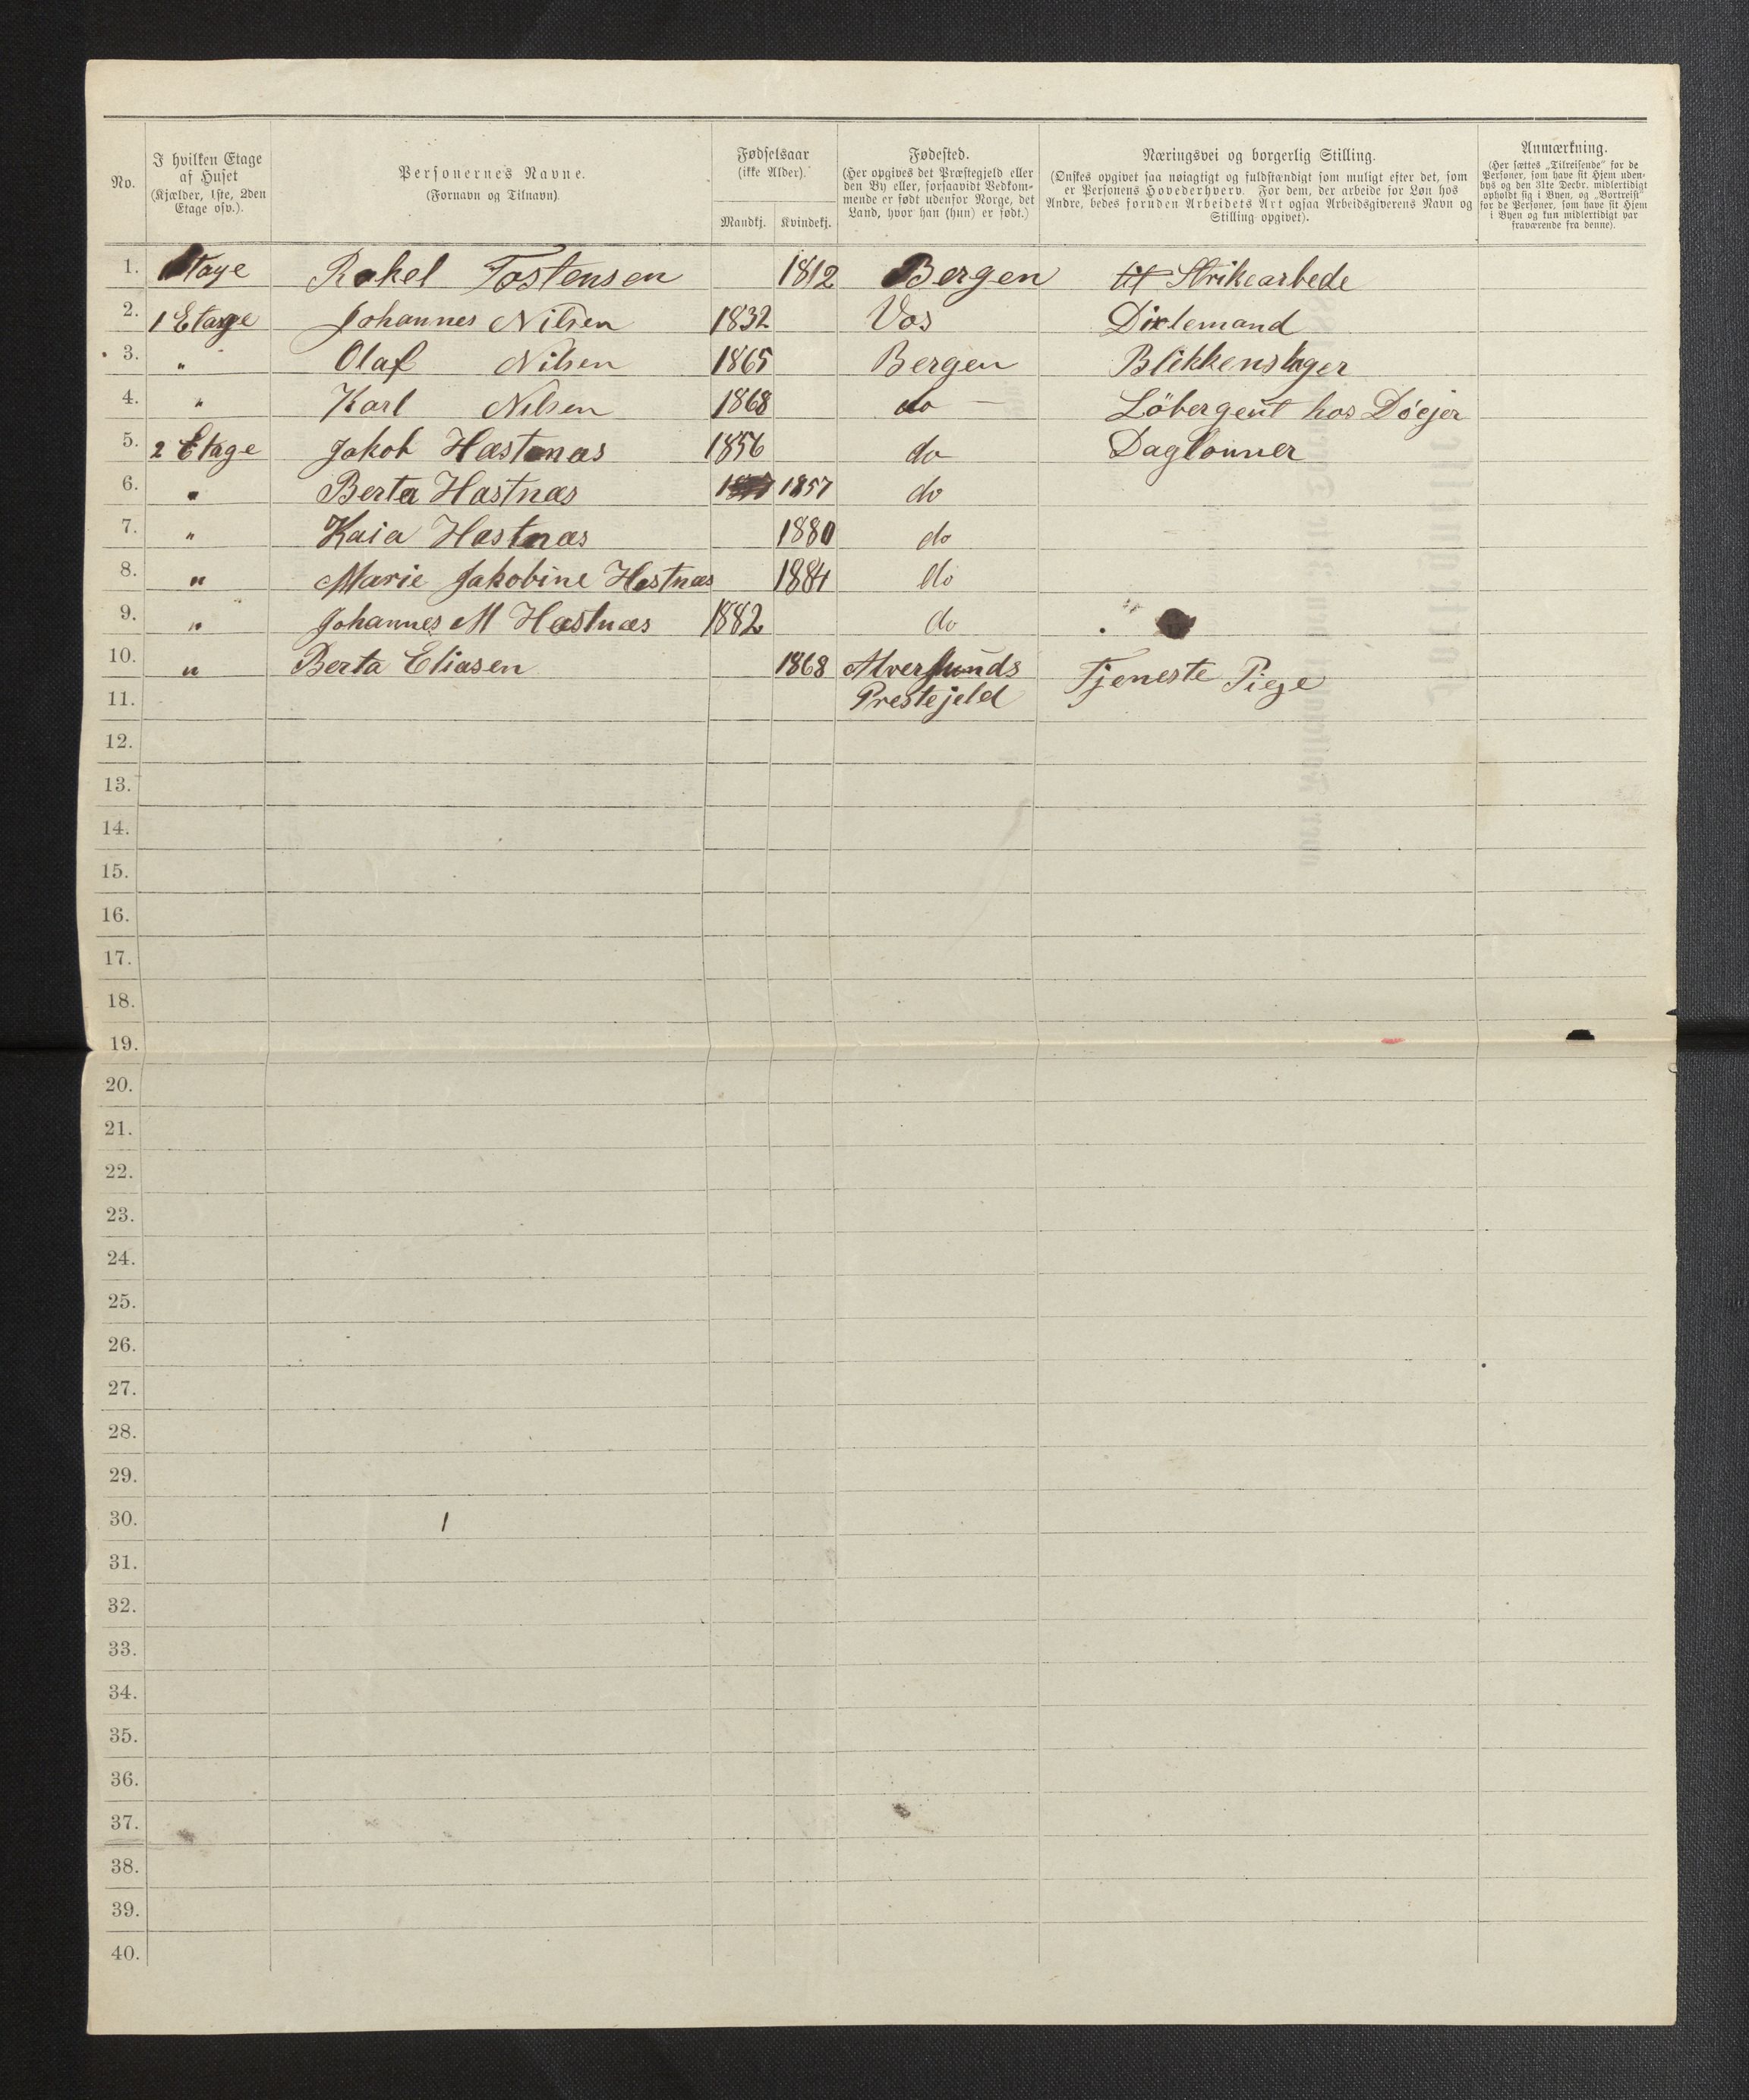 No.
I hvilken Etage
af Huset
(Kjælder, 1ste, 2den
Etage osv.).
Personernes Navne.
(Fornavn og Tilnavn)
Fødselsaar
(ikke Alder).
Mandkj. Kvindekj.
Fødested.
(Her opgives det Præstegjeld eller
den By eller, forsaavidt Vedkom-
mende er født udenfor Norge, det
Land, hvor han (hun) er født.)
Næringsvei og borgerlig Stilling.
(Ønskes opgivet saa nøiagtigt og fuldstændigt som muligt efter det, som
er Personens Hovederhverv. For dem, der arbeide for Løn hos
Andre, bedes foruden Arbeidets Art ogsaa Arbeidsgiverens Navn og
Stilling opgivet).
Anmærkning.
(Her sættes „Tilreisende" for de
Personer, som have sit Hjem uden-
bys og den 31te Decbr. midlertidigt
opholdt sig i Byen, og „Bortreist"
for de Personer, som have sit Hjem
i Byen og kun midlertidigt var
fraværende fra denne).
1. Etage Rakel Tostensen 1812 Bergen Strikearbede
2. 1 Etage Johannes Nilsen 1832 Vos Dixlemand
3. " Olaf Nilsen 1865 Bergen Blikkenslager
4. " Karl Nilsen 1868 do — Löbergeut hos Döejer
5. 2 Etage Jakob Hæstnæs 1856 do Daglonner
6. " Berta Hæstnæs 1857 do
7. " Kaia Hæstnæs 1880 do
8. " Marie Jakobine Hæstnæs 1884 do
9. " Johannes M Hæstnæs 1882 do
10. " Berta Eliasen 1868 Alversunds Tjeneste Piege
11. Prestejeld
12.
13.
14.
15.
16.
17.
18.
19.
20.
21.
22.
23.
24.
25.
26.
27.
28.
29.
30.
31.
32.
33.
34.
35.
36.
37.
38.
39.
40.